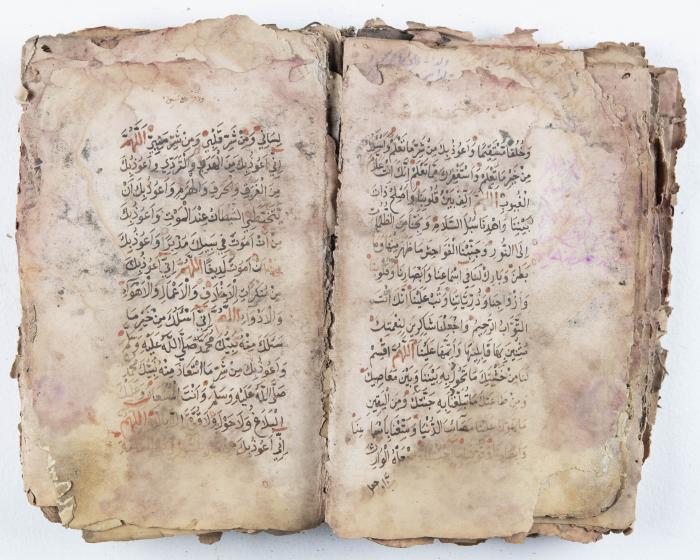 وخلقا مستقيما واعوذ بك من شر ما تعلم واسئلك
من خير ما تعلم واستغفرك مما تعلم انك انت علام
الغيوب اللهم الف بين قلوبنا واصلح ذات
بيننا واهدنا سبل السلام ونجنا من الظلمات
الى النور وجنبنا الفواحش ما ظهر منها وما
بطن وبارك لنا في اسماعنا وابصارنا وقلوبنا
وازواجنا وذرياتنا وتب علينا انك انت
التواب الرحيم واجعلنا شاكرين لنعمتك
مثنين بها قابليها واتمها علينا اللهم اقسم
لنا من خشيتك ما تحول به بيننا وبين معاصيك
ومن طاعتك ما تبلغنا به جنتك ومن اليقين
ما تهون علينا مصائب الدنيا ومتعنا باسماعنا
لساني ومن شر قلبي ومن شر منيي اللهم
اني اعوذ بك من الهدم والتردي واعوذ بك
من الغرق والحرق والهرم واعوذ بك ان
يتخبطني الشيطان عند الموت واعوذ بك
من ان اموت في سبيلك مدبرا واعوذ بك
ان اموت لديغا اللهم اني اعوذ بك
من منكرات الاخلاق والاعمال والاهواء
والادواء اللهم اني اسئلك من خير ما
سئلك منه نبيك محمد صلى الله عليه وسلم
واعوذ بك من شر ما استعاذ منه نبيك محمد
صلى الله عليه وسلم وانت المستعان وعليك
البلاغ ولا حول ولا قوة الا بالله اللهم
اني اعوذ بك